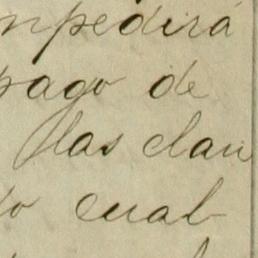 mpedirá
pago de
las clau
lo cual